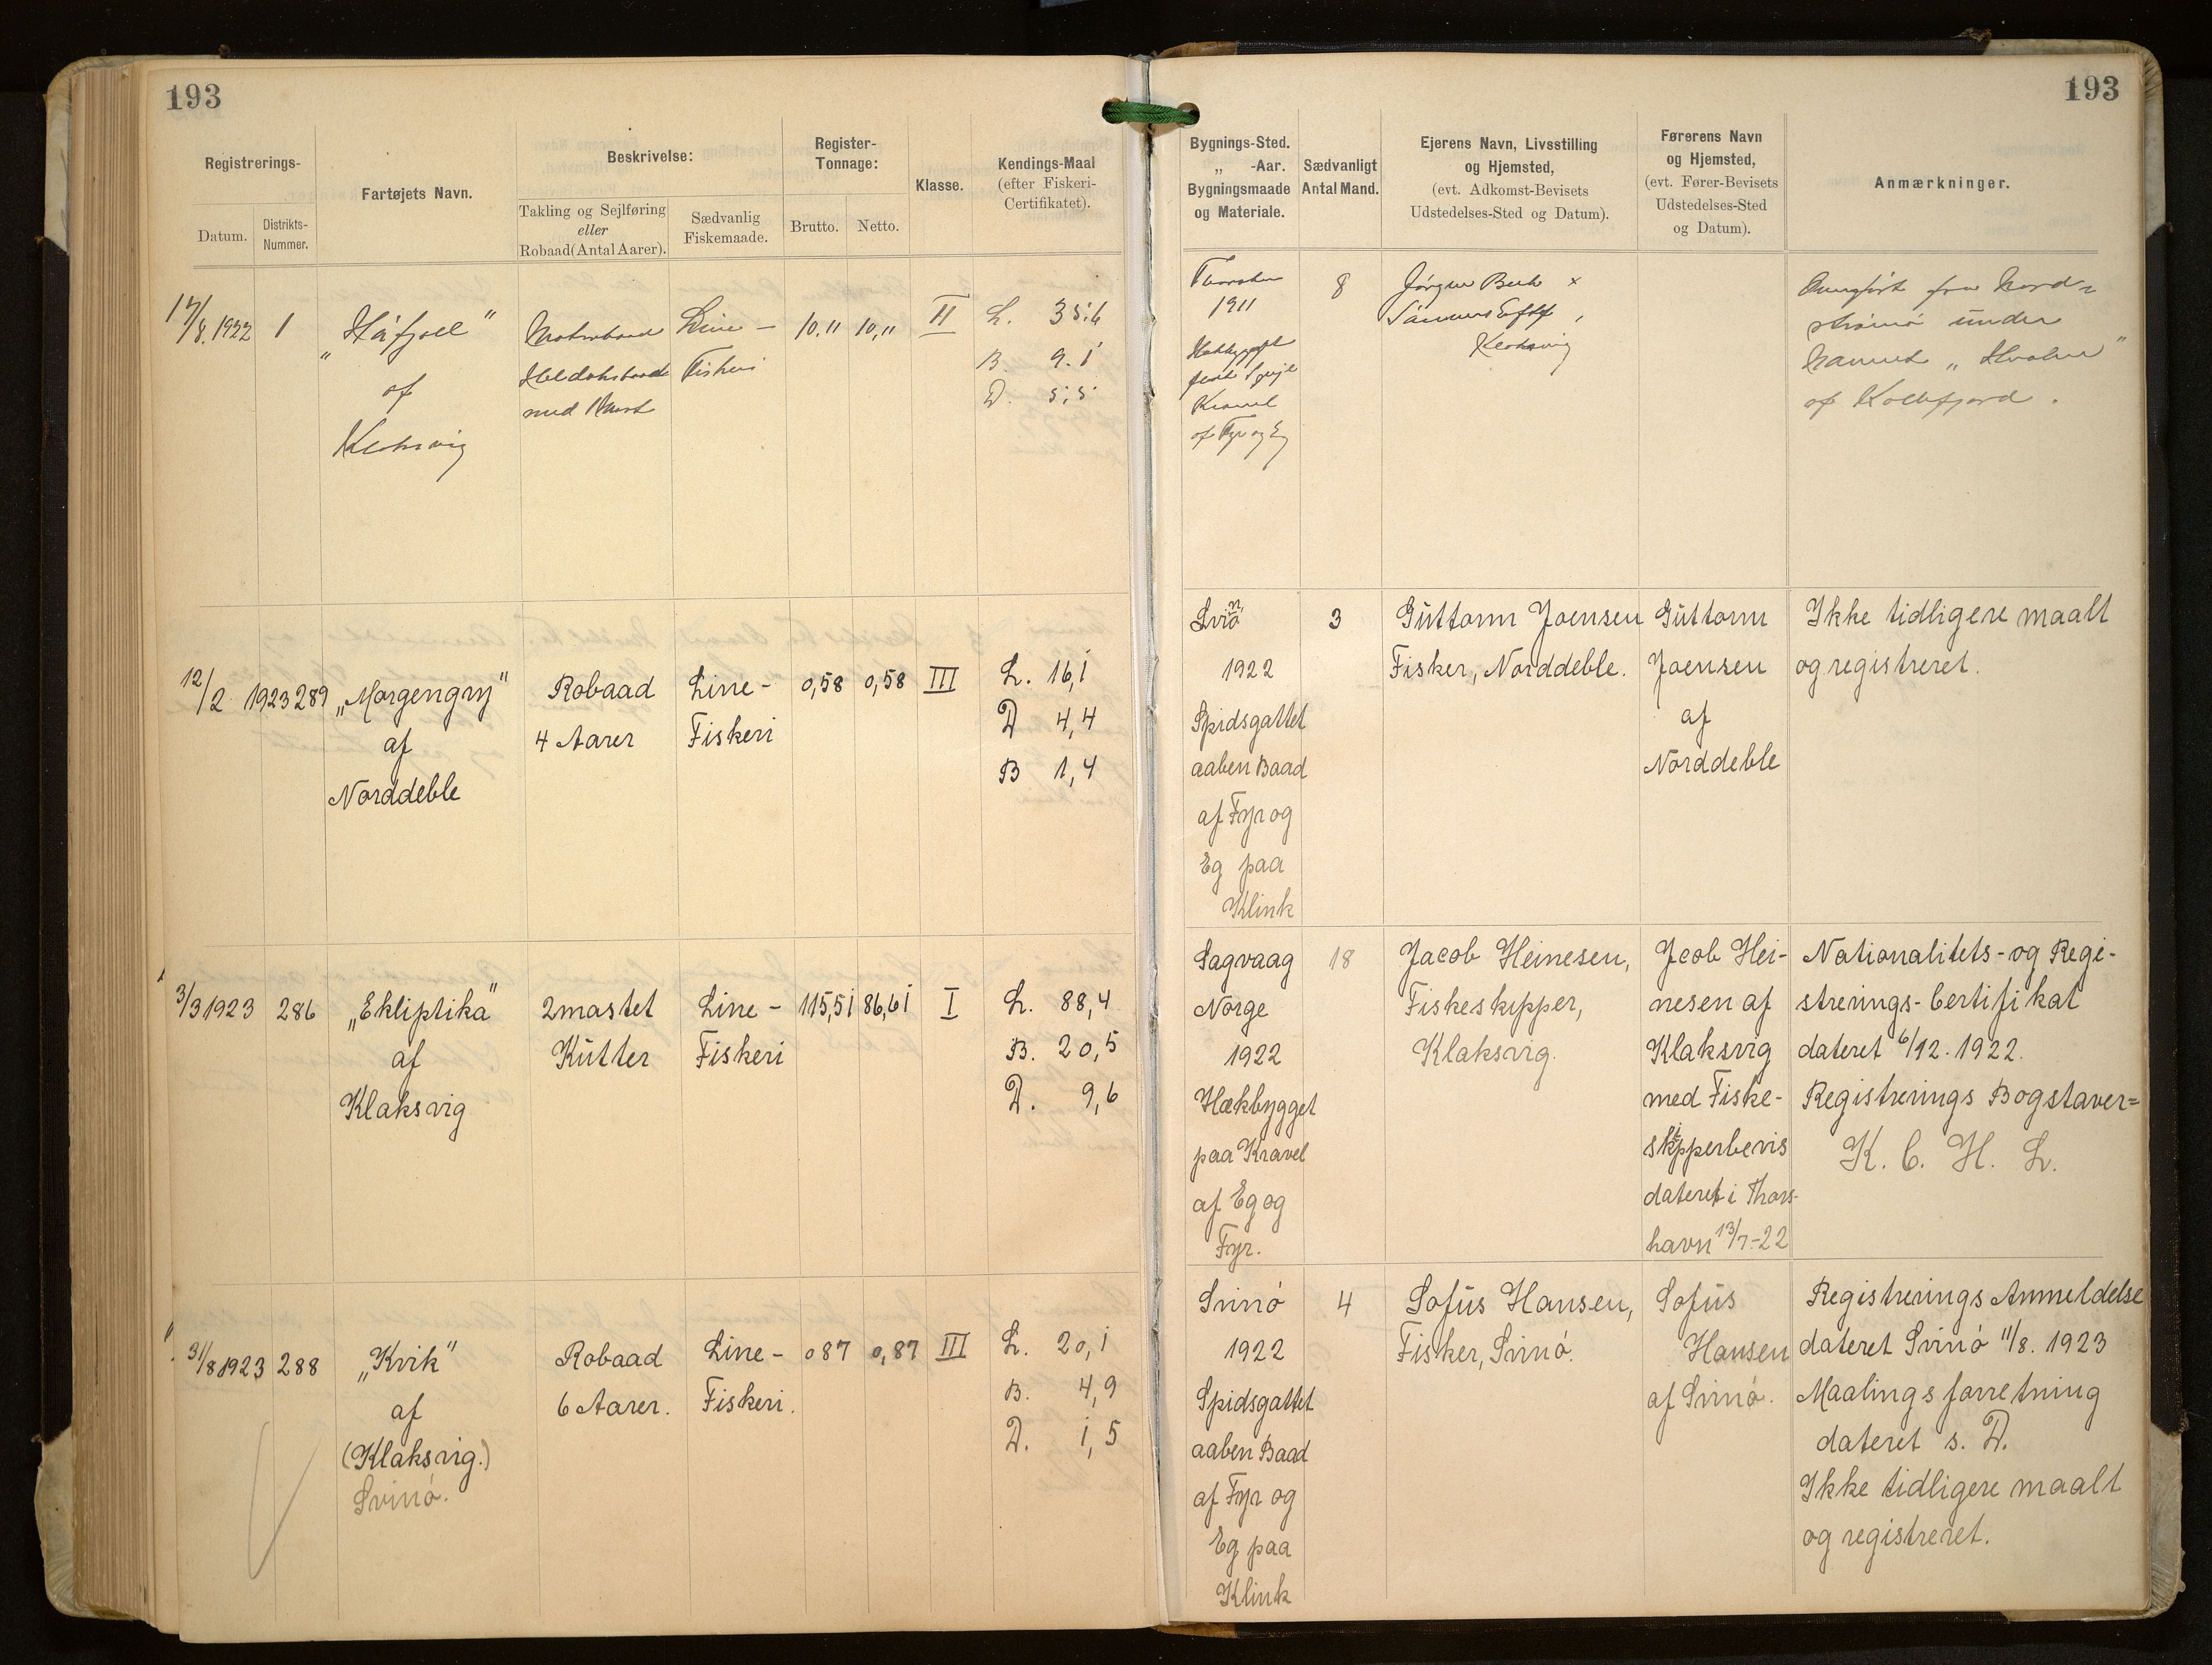 193
193
Registrerings-
Datum.
Distrikts-
Nummer.
Fartøjets Navn.
Beskrivelse:
Takling og Sejlføring
eller
Robaad (Antal Aarer).
Sædvanlig
Fiskemaade.
Register-
Tonnage:
Brutto.
Netto.
Klasse.
Kendings-Maal
(efter Fiskeri-
Certifikatet).
Bygnings-Sted.
„ -Aar.
Bygningsmaade
og Materiale.
Sædvanligt
Antal Mand.
Ejerens Navn, Livsstilling
og Hjemsted,
(evt. Adkomst-Bevisets
Udstedelses-Sted og Datum).
Førerens Navn
og Hjemsted,
(evt. Fører-Bevisets
Udstedelses-Sted
og Datum).
Anmærkninger.
17/8. 1922
1
„Háfjall"
af
Klaksvig
Motorbaad
Heldæksbaad
med Mast
Line-
Fiskeri
10.11
10,11
II
L. 35.6
B. 9.1
D. 5,5
Thorshavn
1911
Kravel
af Fyr og Eg
8
Jørgen Bech
Sønners Eftf,
Klaksvig
Overført fra Nord-
strømø under
Navnet „
af Kollefjord.
12/2 1923
289
„Morgengry"
af
Norddeble
Robaad
4 Aarer
Line-
Fiskeri
0,58
0,58
III
L. 16,1
D 4,4
B 1,4
Svinø
1922
Spidsgattet
aaben Baad
af Fyr og
Eg paa
Klink
3
Guttorm Joensen
Fisker, Norddeble.
Guttorm
Joensen
af
Norddeble
Ikke tidligere maalt
og registreret.
3/3 1923
286
„Ekliptika"
af
Klaksvig
2mastet
Kutter
Line-
Fiskeri
115,51
86,61
I
L. 88,4
B. 20,5
D. 9,6
Sagvaag
Norge
1922
Hækbygget
paa Kravel
af Eg og
Fyr.
18
Jacob Heinesen,
Fiskeskipper,
Klaksvig.
Jcob Hei-
nesen af
Klaksvig
med Fiske-
skipperbevis
dateret i Thors-
havn 13/7-22
Nationalitets- og Regi-
strerings-Certifikat
dateret 6/12. 1922.
Registrerings Bogstaver=
K. C. H. L.
31/8 1923
288
„Kvik"
af
(Klaksvig.)
Svinø.
Robaad
6 Aarer.
Line-
Fiskeri.
0 87
0,87
III
L. 20,1
B. 4,9
D. 1,5
Svinø
1922
Spidsgattet
aaben Baad
af Fyr og
Eg paa
Klink
4
Sofus Hansen,
Fisker, Svinø.
Sofus
Hansen
af Svinø.
Registrerings Anmeldelse
dateret Svinø 11/8. 1923
Maalingsforretning
dateret s. D.
Ikke tidligere maalt
og registreret.